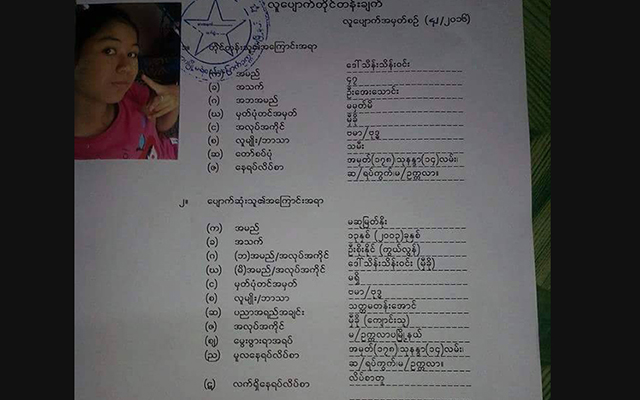 လူပျောက်တိုင်တန်းချက်
လူပျောက်အမှတ်စဉ် (၄၂/၂၀၁၆)
၁။ တိုင်တန်းသူ၏အကြောင်းအရာ
(က) အမည် ဒေါ်သိန်းသိန်းဝင်း
(ခ) အသက် ၄၇
(ဂ) အဘအမည် ဦးအေးသောင်း
(ဃ) မှတ်ပုံတင်အမှတ် မမှတ်မိ
(င) အလုပ်အကိုင် မှီခို
(စ) လူမျိုး/ဘာသာ ဗမာ/ဗုဒ္ဓ
(ဆ) တော်စပ်ပုံ သမီး
(ဇ) နေရပ်လိပ်စာ အမှတ်(၁၇၈)သုနန္ဒာ(၁၄)လမ်း၊
ဆ/ရပ်ကွက်၊မ/ဥက္ကလာ။
၂။ ပျောက်ဆုံးသူ၏အကြောင်းအရာ
(က) အမည် မဆုမြတ်နိုး
(ခ) အသက် ၁၃နှစ် (၂၀၀၃)ခုနှစ်
(ဂ) (ဘ)အမည်/အလုပ်အကိုင် ဦးစိုးနိုင် (ကွယ်လွန်)
(ဃ) (မိ)အမည်/အလုပ်အကိုင် ဒေါ်သိန်းသိန်းဝင်း (မှီခို)
(င) မှတ်ပုံတင်အမှတ် မရှိ
(စ) လူမျိုး/ဘာသာ ဗမာ/ဗုဒ္ဓ
(ဆ) ပညာအရည်အချင်း သတ္တမတန်းအောင်
(ဇ) အလုပ်အကိုင် မှီခို (ကျောင်းသူ)
(ဈ) မွေးဖွားရာအရပ် မ/ဥက္ကလာပမြို့နယ်
(ည) မူလနေရပ်လိပ်စာ အမှတ်(၁၇၈)သုနန္ဒာ(၁၄)လမ်း၊
ဆ/ရပ်ကွက်၊မ/ဥက္ကလာ။
(ဋ) လက်ရှိနေရပ်လိပ်စာ လိပ်စာတူ